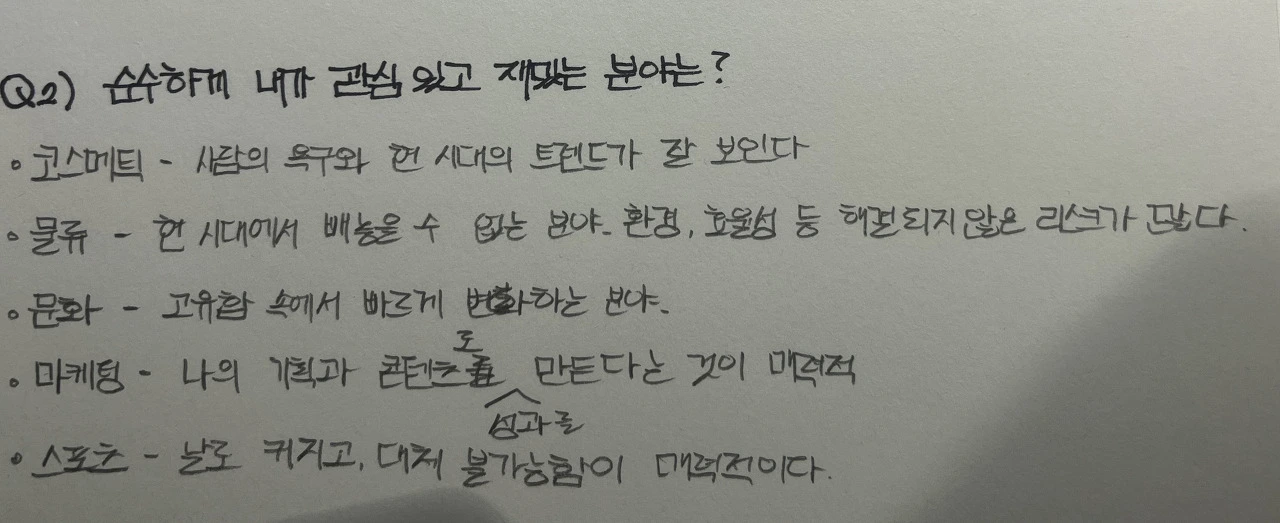 Q2) 순수하게 내가 관심 있고 재밌는 분야는?
• 코스메틱 - 사람의 욕구와 현 시대의 트렌드가 잘 보인다
• 물류 - 현 시대에서 빼놓을 수 없는 분야. 환경, 효율성 등 해결되지않은 리스크가 많다.
• 문화 - 고유함 속에서 빠르게 변화하는 분야.
• 마케팅 - 나의 기획과 콘텐츠로 성과를 만든다는 것이 매력적
• 스포츠 - 날로 커지고, 대체 불가능함이 매력적이다.